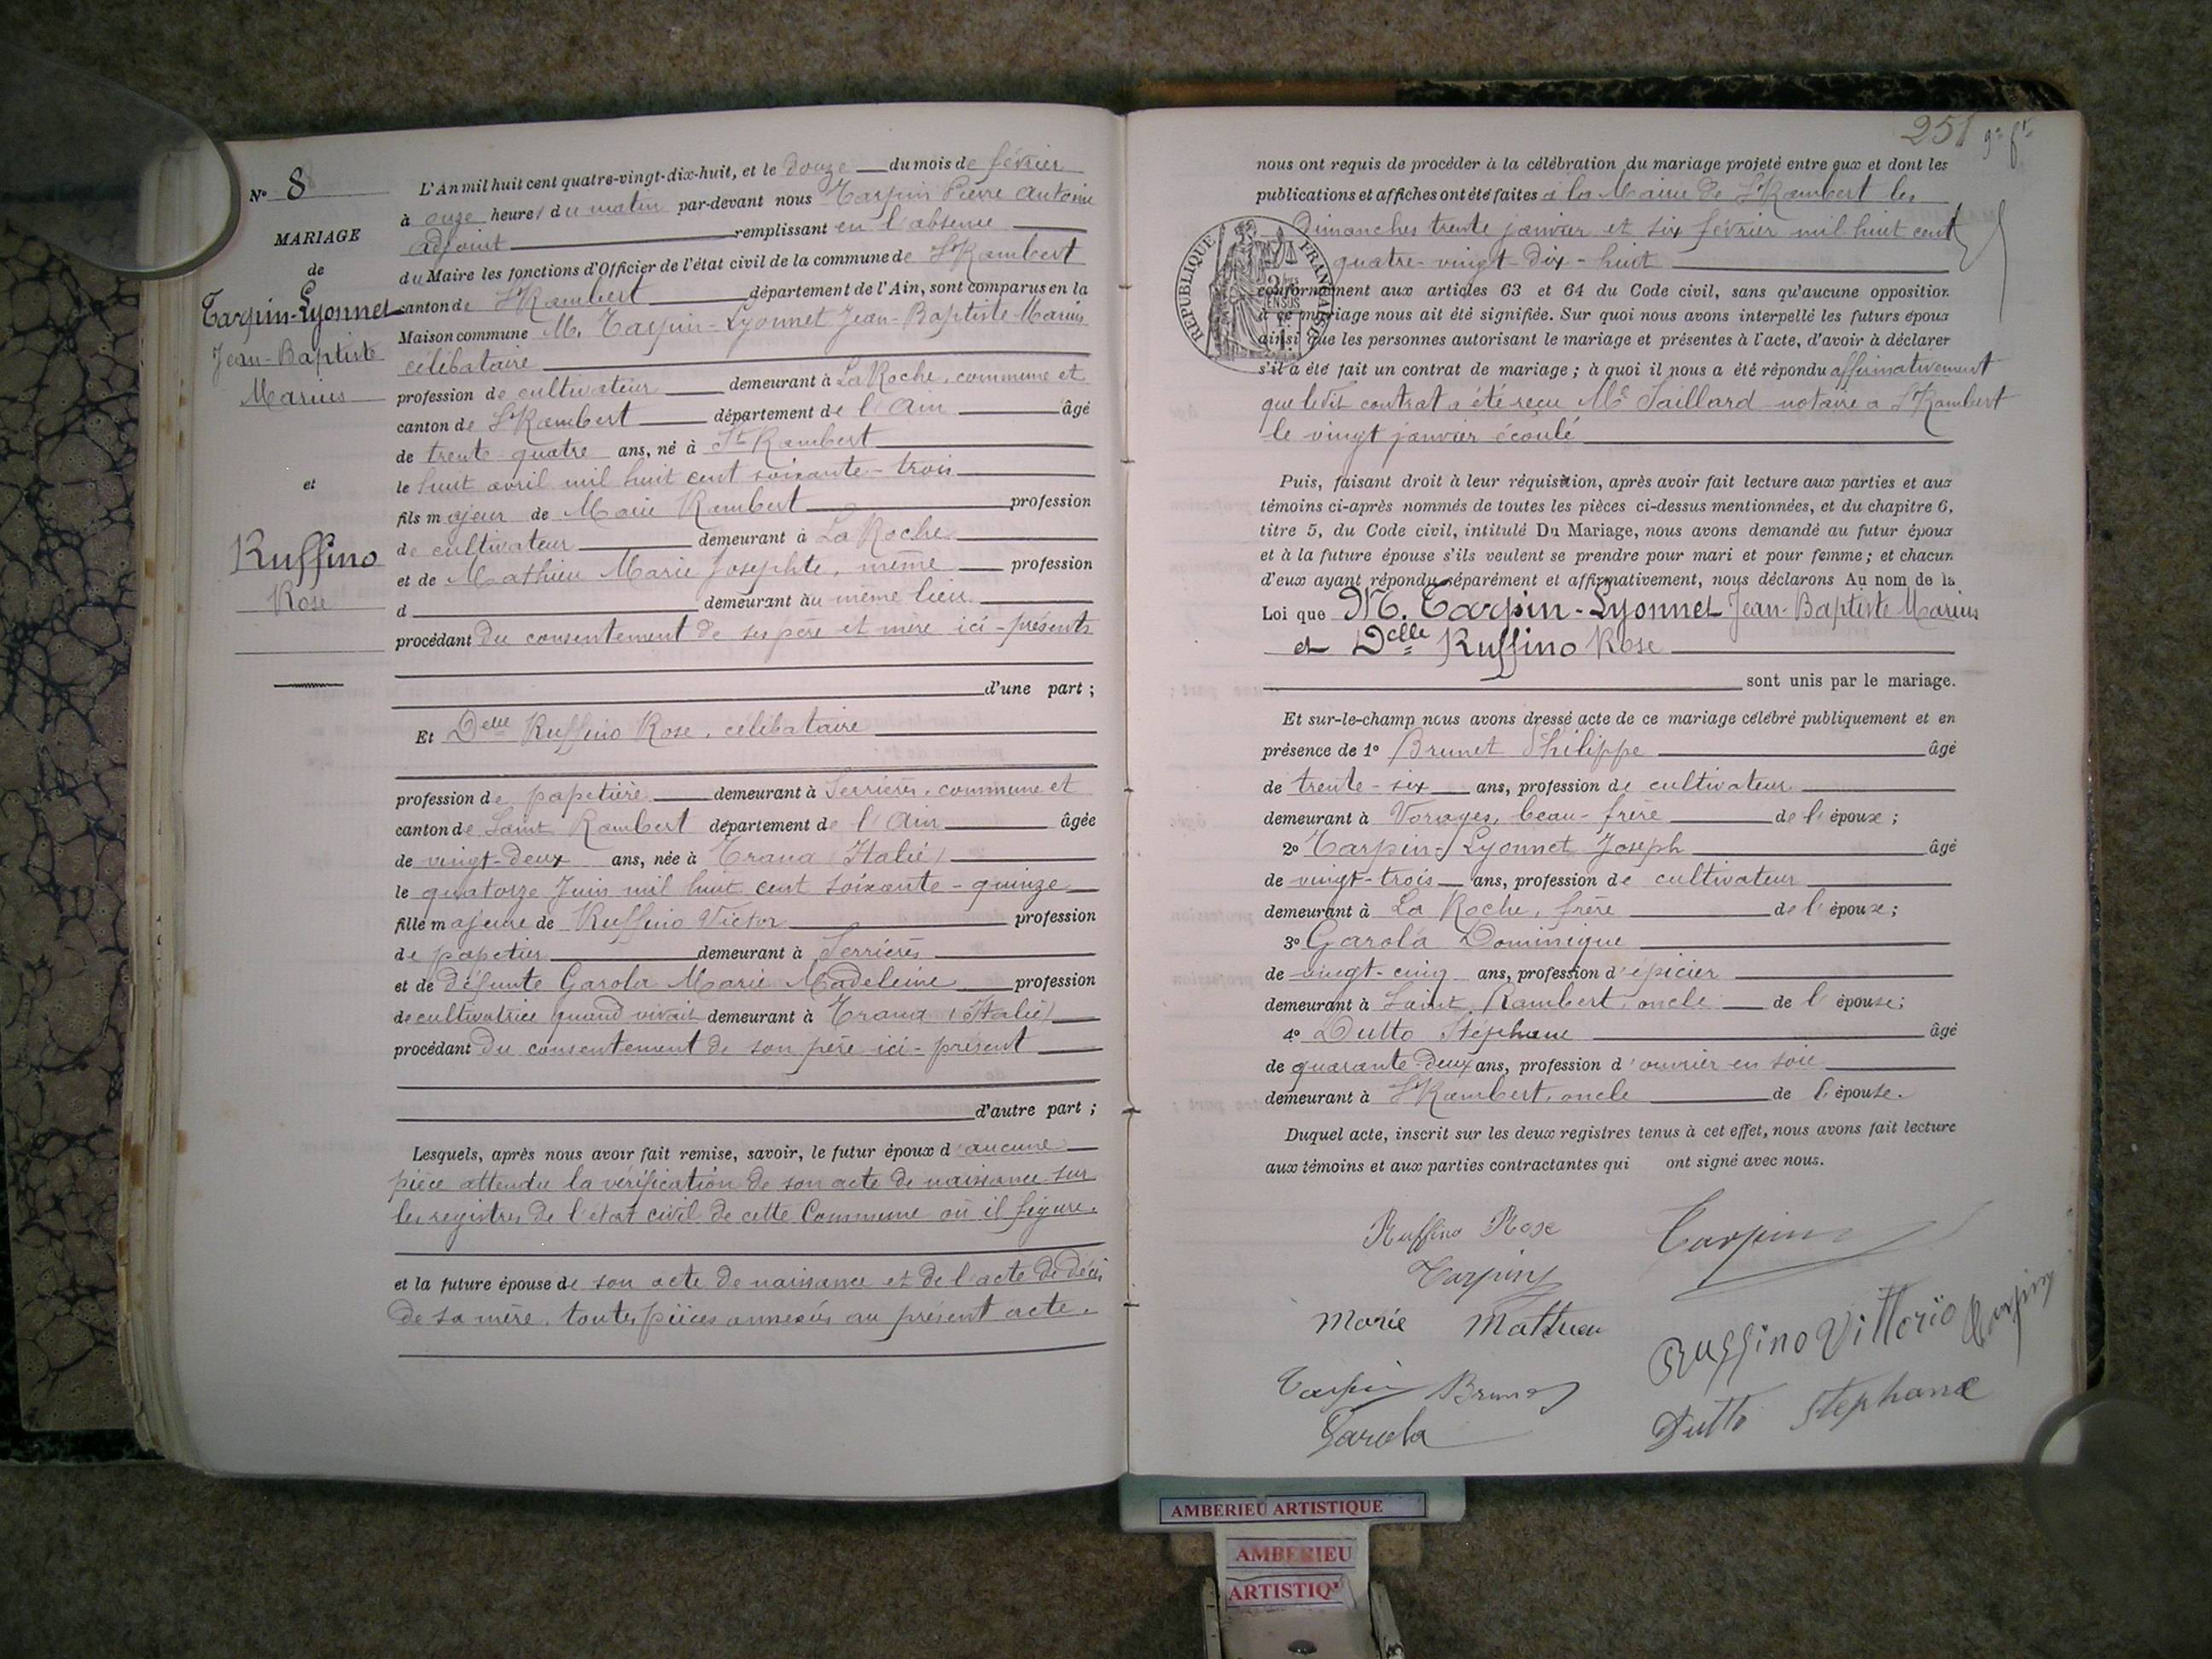 N° 8
MARIAGE
de
Tarpin-Lyonnet
Jean-Baptiste
Marius
et
Ruffino
Rose
L'An mil huit cent quatre-vingt-dix-huit, et le douze du mois de février
à onze heures du matin par-devant nous Tarpin Pierre Antoine
adjoint remplissant en l'absence
du Maire les fonctions d'Officier de l'état civil de la commune de St Rambert
canton de St Rambert département de l'Ain, sont comparus en la
Maison commune M. Tarpin-Lyonnet Jean-Baptiste-Marius
célibataire
profession de cultivateur demeurant à La Roche, commune et
canton de St Rambert département de l'Ain âgé
de trente quatre ans, né à St Rambert
le huit avril mil huit cent soixante-trois
fils majeur de Marie Rambert profession
de cultivateur demeurant à La Roche
et de Mathieu Marie Josephte, même profession
d demeurant au même lieu
procédant du consentement de ses père et mère ici-présents
d'une part ;
Et Delle Ruffino Rose, célibataire
profession de papetière demeurant à Serrières, commune et
canton de Saint Rambert département de l'Ain âgée
de vingt-deux ans, née à Trana (Italie)
le quatorze Juin mil huit cent soixante-quinze
fille majeure de Ruffino Victor profession
de papetier demeurant à Serrières
et de défunte Garola Marie Madeleine profession
de cultivatrice quand vivait demeurant à Trana (Italie)
procédant du consentement de son père ici-présent
d'autre part ;
Lesquels, après nous avoir fait remise, savoir, le futur époux d'aucune
pièce attendu la vérification de son acte de naissance sur
les registres de l'état civil de cette Commune où il figure.
et la future épouse de son acte de naissance et de l'acte de décès
de sa mère, toutes pièces annexées au présent acte.
251
nous ont requis de procéder à la célébration du mariage projeté entre eux et dont les
publications et affiches ont été faites à la Mairie de St Rambert les
dimanches trente janvier et six février mil huit cent
quatre-vingt-dix-huit
RÉPUBLIQUE FRANÇAISE
conformément aux articles 63 et 64 du Code civil, sans qu'aucune opposition
à ce mariage nous ait été signifiée. Sur quoi nous avons interpellé les futurs époux
ainsi que les personnes autorisant le mariage et présentes à l'acte, d'avoir à déclarer
s'il a été fait un contrat de mariage ; à quoi il nous a été répondu affirmativement
que ledit contrat a été reçu Me Saillard notaire a St Rambert
le vingt janvier écoulé
Puis, faisant droit à leur réquisition, après avoir fait lecture aux parties et aux
témoins ci-après nommés de toutes les pièces ci-dessus mentionnées, et du chapitre 6,
titre 5, du Code civil, intitulé Du Mariage, nous avons demandé au futur époux
et à la future épouse s'ils veulent se prendre pour mari et pour femme ; et chacun
d'eux ayant répondu séparément et affirmativement, nous déclarons Au nom de la
Loi que M. Tarpin-Lyonnet Jean-Baptiste Marius
et Delle Ruffino Rose
sont unis par le mariage.
Et sur-le-champ nous avons dressé acte de ce mariage célébré publiquement et en
présence de 1° Brunet Philippe âgé
de trente-six ans, profession de cultivateur
demeurant à Vorages, beau-frère de l'époux ;
2° Tarpin-Lyonnet Joseph âgé
de vingt-trois ans, profession de cultivateur
demeurant à La Roche, frère de l'époux;
3° Garola Dominique
de vingt-cinq ans, profession d'épicier
demeurant à Saint Rambert, oncle de l'épouse;
4° Dutto Stéphane âgé
de quarante-deux ans, profession d'ouvrier en soie
demeurant à St Rambert, oncle de l'épouse.
Duquel acte, inscrit sur les deux registres tenus à cet effet, nous avons fait lecture
aux témoins et aux parties contractantes qui ont signé avec nous.
Ruffino Rose Tarpin
Tarpin
Marie Mathieu
Ruffino Vittorio Tarpin
Tarpin Brunet
Garola
Dutto Stephane
AMBERIEU ARTISTIQUE
AMBERIEU
ARTISTIQ